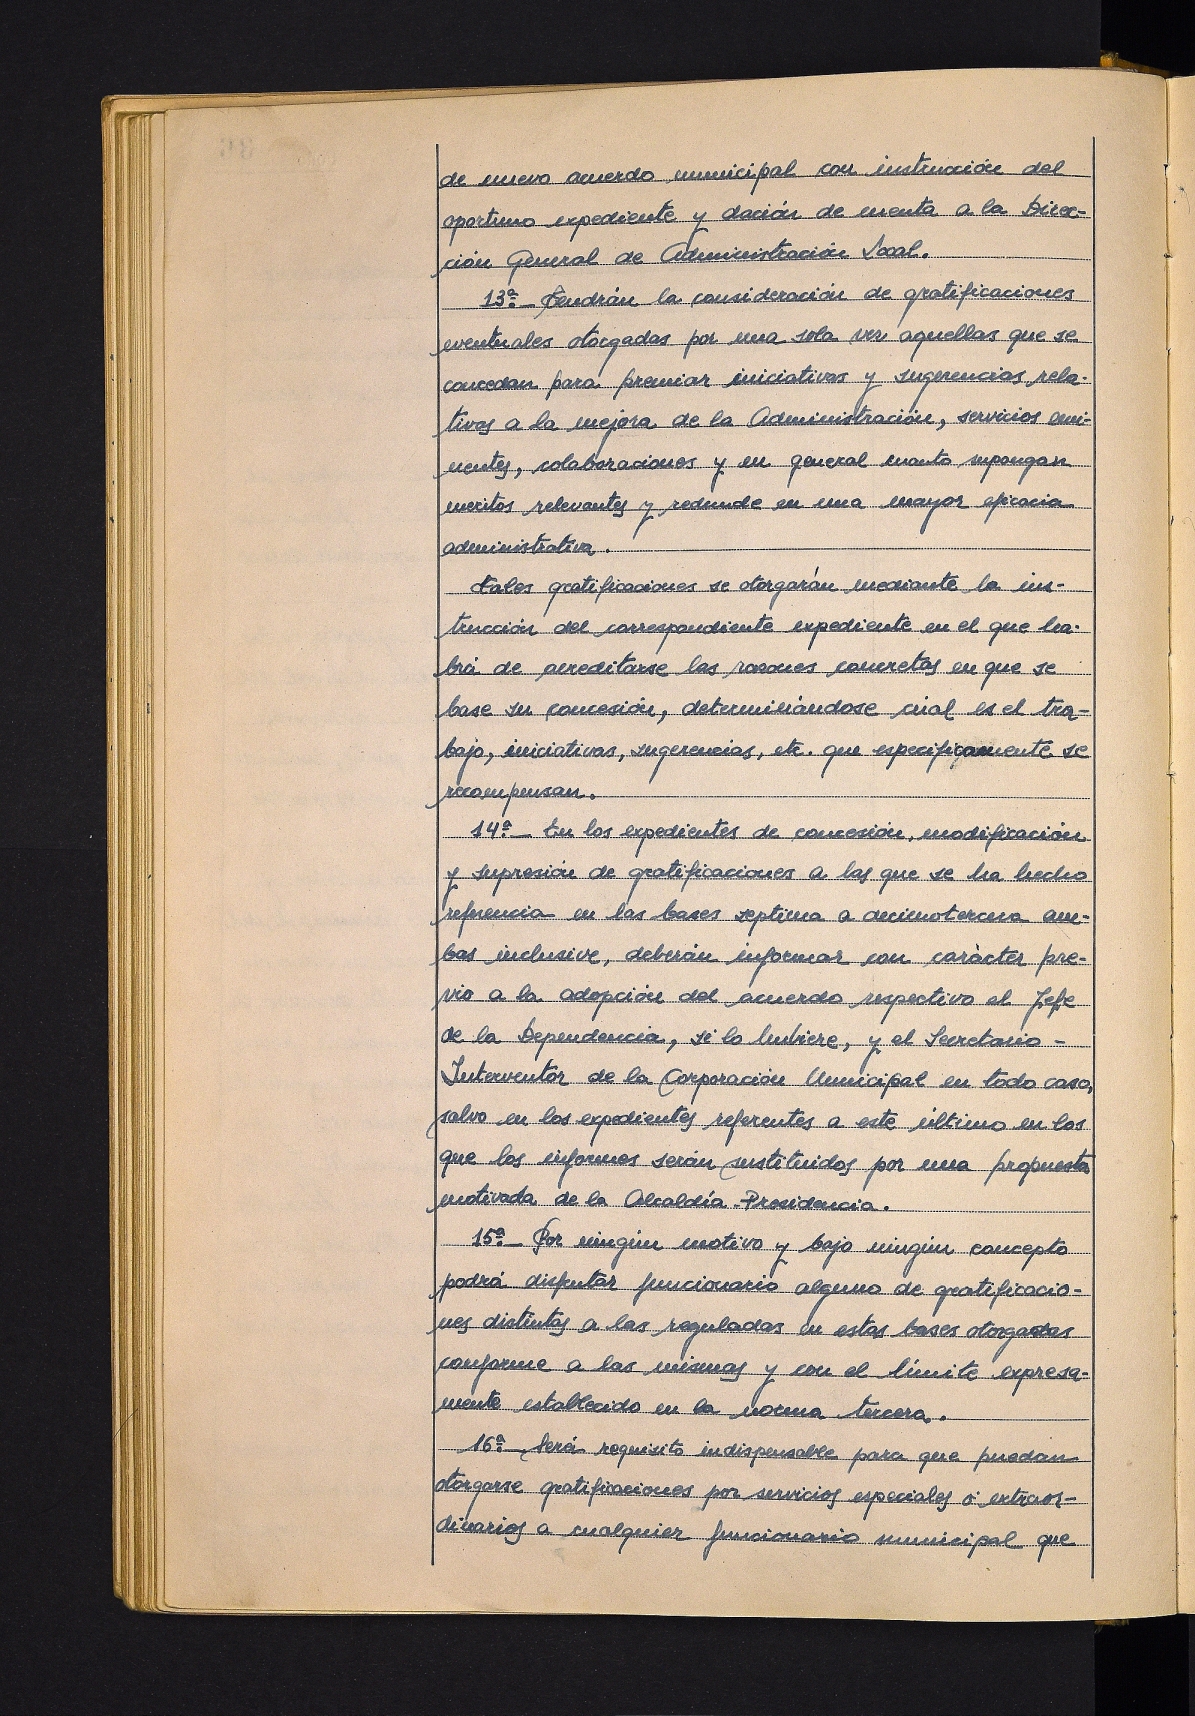 de nuevo acuerdo municipal con instrucción del
oportuno expediente y dación de cuenta a la Direc-
ción General de Administración Local.
13ª.- Tendrán la consideración de gratificaciones
eventuales otorgadas por una sola vez aquellas que se
concedan para premiar iniciativas y sugerencias rela-
tivas a la mejora de la Administración, servicios emi-
nentes, colaboraciones y en general cuanto supongan
meritos relevantes y redunde en una mayor eficacia
administrativa.
Tales gratificaciones se otorgarán mediante la ins-
trucción del correspondiente expediente en el que ha-
brá de acreditarse las razones concretas en que se
base su concesión, determinándose cúal es el tra-
bajo, iniciativas, sugerencias, etc. que especificamente se
recompensan.
14ª.- En los expedientes de concesión, modificación
y supresión de gratificaciones a las que se ha hecho
referencia en las bases septima a decimotercera am-
bas inclusive, deberán informar con carácter pre-
vio a la adopción del acuerdo respectivo el Jefe
de la Dependencia, si lo hubiere, y el Secretario -
Interventor de la Corporación Municipal en todo caso,
salvo en los expedientes referentes a este último en los
que los informes serán sustituidos por una propuesta
motivada de la Alcaldía-Presidencia.
15ª.- Por ningún motivo y bajo ningún concepto
podrá disfrutar funcionario alguno de gratificacio-
nes distintas a las reguladas en estas bases otorgadas
conforme a las mismas y con el límite expresa-
mente establecido en la norma tercera.
16ª.- Será requisito indispensable para que puedan
otorgarse gratificaciones por servicios especiales o extraor-
dinarios a cualquier funcionario municipal que